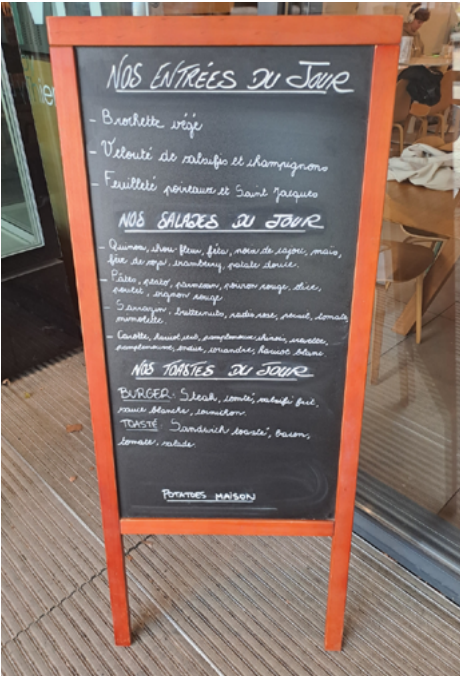 NOS ENTRÉES DU JOUR
- Brochette végé
- Velouté de salsifis et champignons
- Feuilleté poireaux et Saint Jacques
NOS SALADES DU JOUR
- Quinoa, chou-fleur, féta, noix de cajou, maïs,
fève de soja, cranberry, patate douce.
- Pâtes, pesto, parmesan, poivron rouge, olive,
poulet, oignon rouge
- Sarrazin, butternuts, radis rose, persil, tomate,
mimolette.
- Carotte, haricot vert, pamplemousse chinois, crevettes,
pamplemousse, endive, coriandre, haricot blanc.
NOS TOASTÉS DU JOUR
BURGER: Steak, comté, salsifi frit,
sauce blanche, cornichon.
TOASTÉ: Sandwich toasté, bacon,
tomate, salade.
POTATOES MAISON